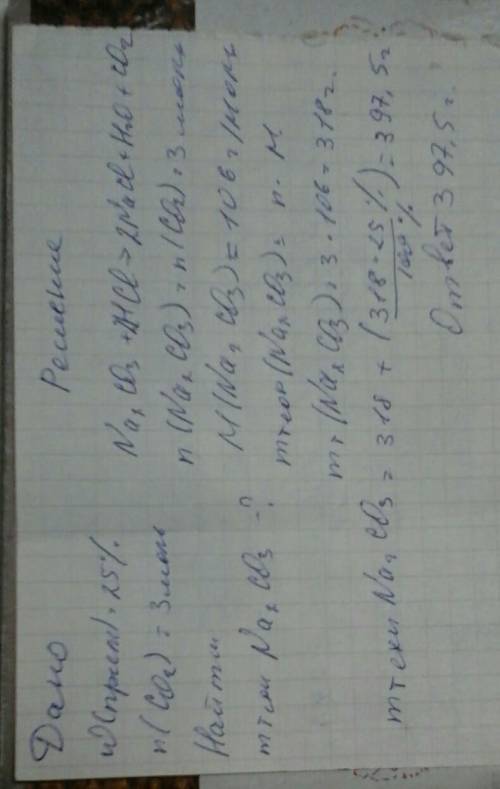 Дано
W(прим) = 25%
n(CO₂) = 3 моль
Найти
mтехн Na₂CO₃ -?
Решение
Na₂CO₃ + 2HCl = 2NaCl + H₂O + CO₂
n(Na₂CO₃) = n(CO₂) = 3 моль
M(Na₂CO₃) = 106 г/моль
mтеор(Na₂CO₃) = n · M
mт(Na₂CO₃) = 3 · 106 = 318 г.
mтехн Na₂CO₃ = 318 + (318 · 25% / 100%) = 397,5 г
Ответ 397,5 г.